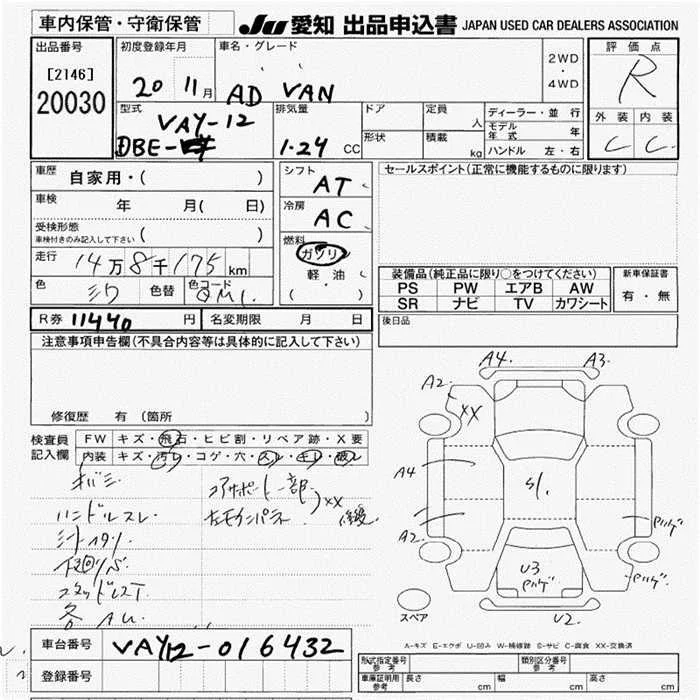 車内保管・守衛保管
JU 愛知 出品申込書 JAPAN USED CAR DEALERS ASSOCIATION
出品番号
[2146]
20030
初度登録年月
20 11月
車名・グレード
AD VAN
2WD
・
4WD
評価点
R
外装 内装
C C
型式
VAY-12
DBE-
排気量
1.24 CC
ドア
形状
定員 人
積載 kg
ディーラー・並行
モデル年式 年
ハンドル 左・右
車歴 自家用・( )
車検 年 月( 日)
受検形態
車検付きのみ記入して下さい ( )
走行 14万8千175km
色 シロ 色替 色コード QM1
シフト AT
冷房 AC
燃料
ガソリン
軽油
( ・ )
セールスポイント(正常に機能するものに限ります)
装備品(純正品に限り○をつけてください)
PS PW エアB AW
SR ナビ TV カワシート
新車保証書
有・無
後日品
R券 11440 円 名変期限 月 日
注意事項申告欄(不具合内容等は具体的に記入して下さい)
修復歴 有(箇所
検査員
記入欄
FW キズ・飛石・ヒビ割・リペア跡・X要
内装 キズ・汚レ・コゲ・穴・スレ・キレ・破レ
ハンドルスレ
コアサポート一部
XX
下廻りサビ
スタッドレスT
各AU
A4 A3
A2 XX
A4
S1
A2
U3
U2
スペア
A-キズ E-エクボ U-凹み W-補修跡 S-サビ C-腐食 XX-交換済
車台番号 VAY12-016432
登録番号
型式指定番号 参考
類別区分番号 参考
車庫証明用 参考 長さ cm 幅 cm 高さ cm